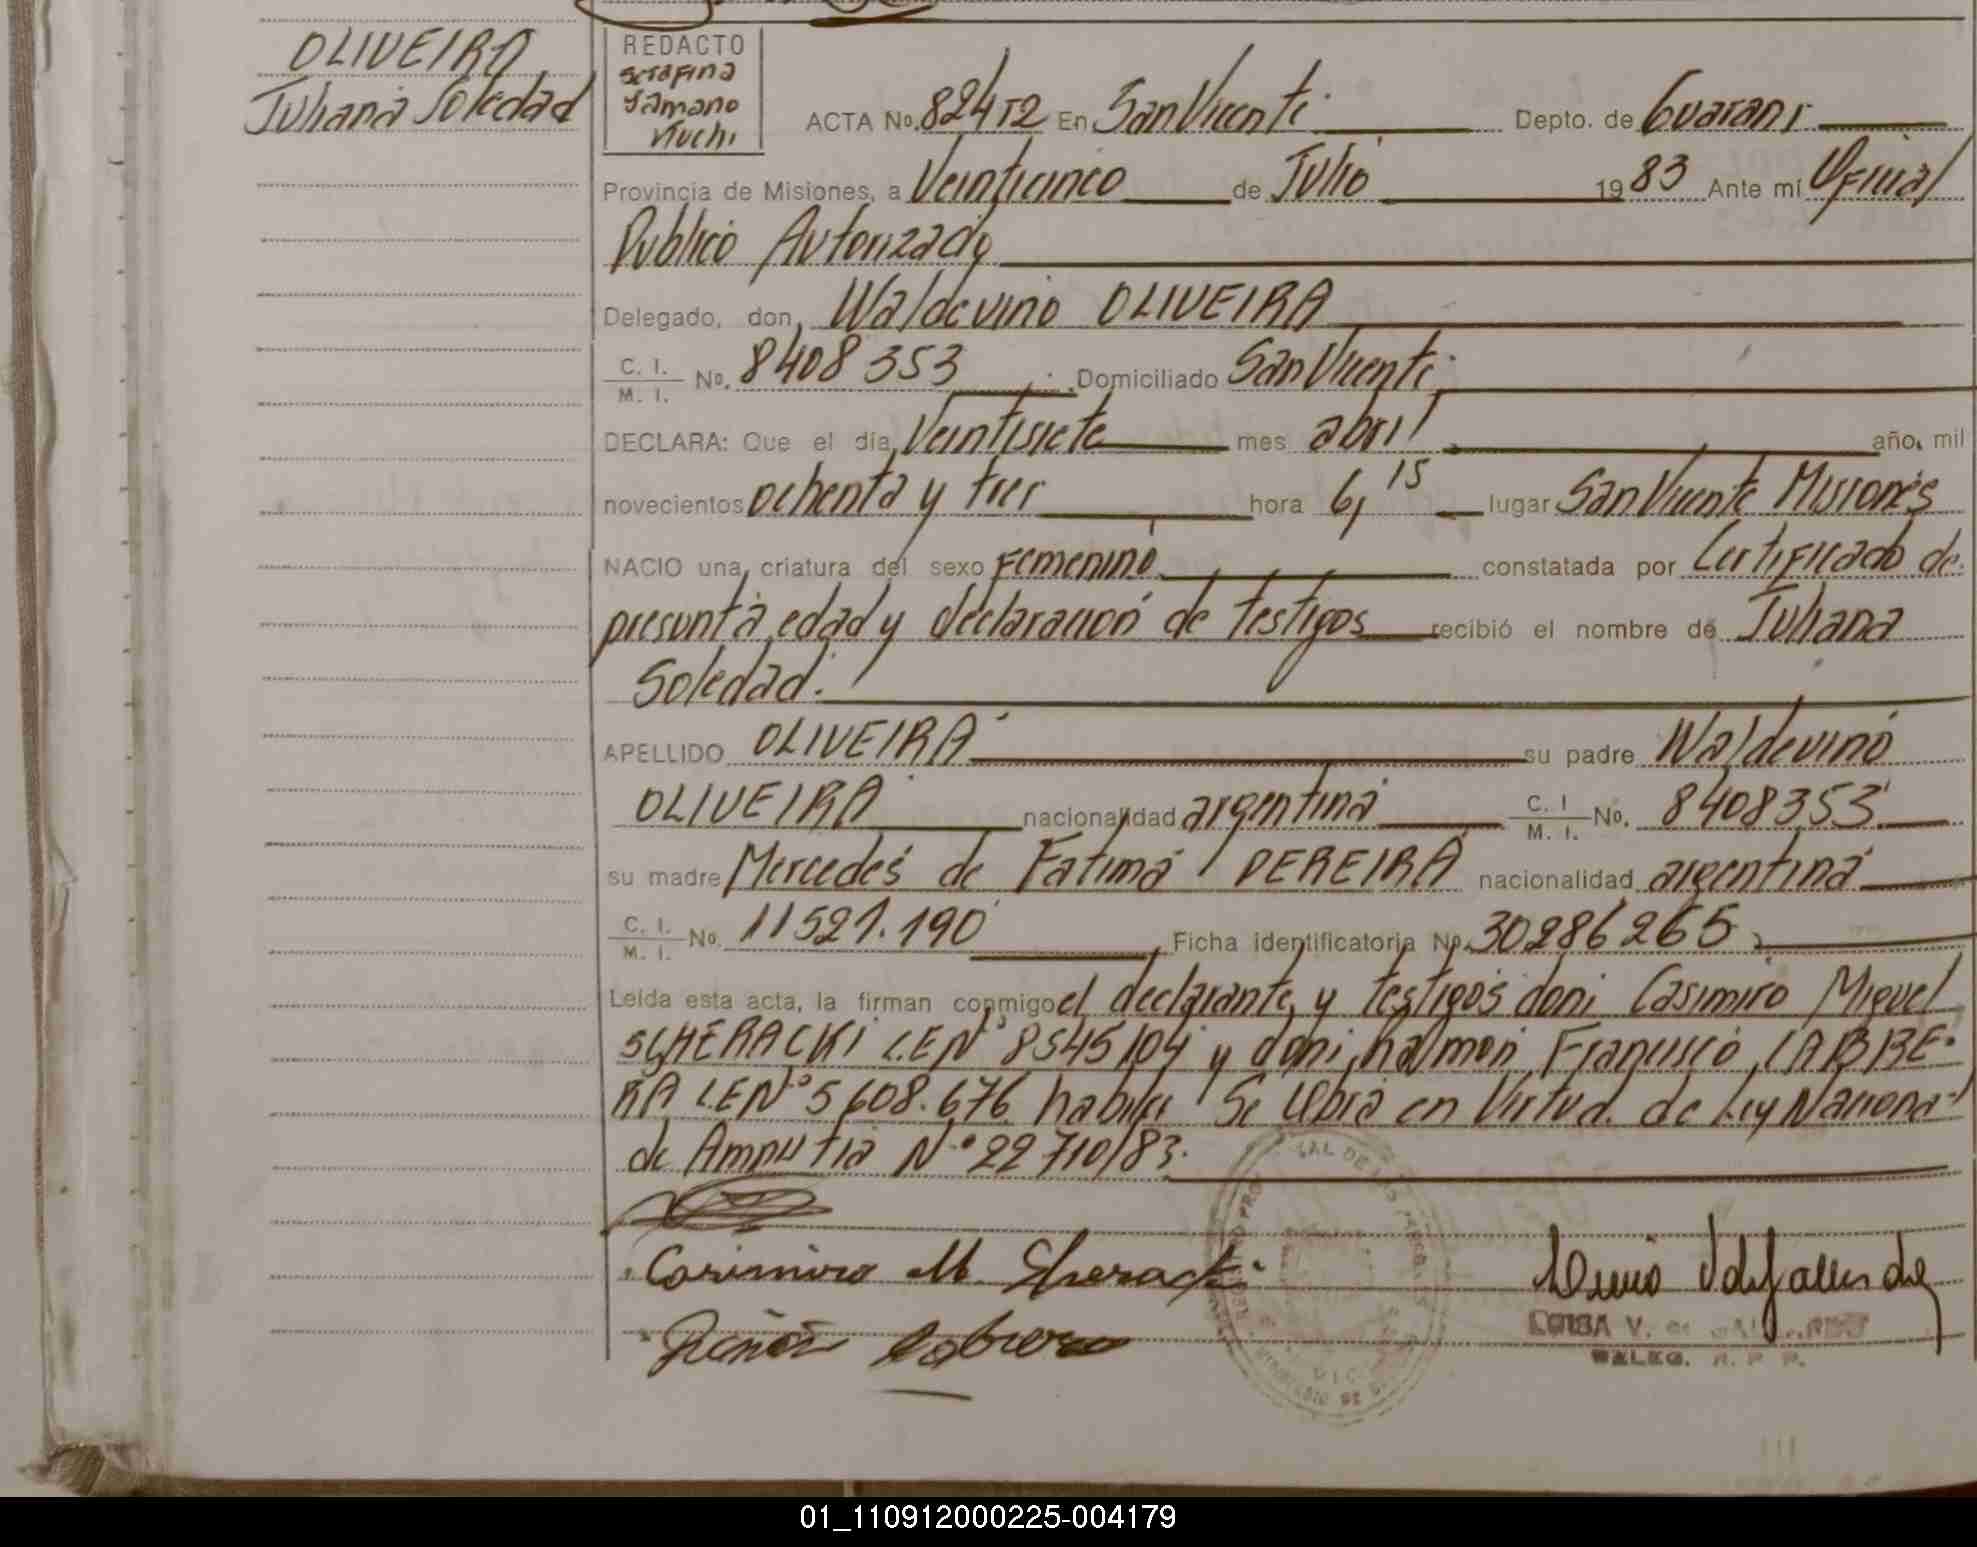 OLIVEIRA
Juliana Soledad
REDACTO
Serafina
Samano
Viuchi
ACTA No. 82452 En San Vicente Depto. de Guarani
Provincia de Misiones, a Veinticinco de Julio 1983 Ante mí Oficial
Publico Autorizado
Delegado, don, Waldevino OLIVEIRA
C. I. / M. I. No. 8408353 Domiciliado San Vicente
DECLARA: Que el día Veintisiete mes abril año mil
novecientos ochenta y tres hora 6,15 lugar San Vicente Misiones
NACIO una criatura del sexo Femenino constatada por Certificado de
presunta edad y declaracion de testigos recibió el nombre de Juliana
Soledad.
APELLIDO OLIVEIRA su padre Waldevino
OLIVEIRA nacionalidad argentina C. I / M. I. No. 8408353
su madre Mercedes de Fatima PEREIRA nacionalidad argentina
C. I. / M. I. No. 11521.190 Ficha identificatoria No. 30286265
Leída esta acta, la firman conmigo el declarante y testigos don: Casimiro Miguel
SCHERACKI L.E Nº 8545104 y don: Ramon Francisco CABRE-
RA L.E Nº 5608.676 habiles Se labra en Virtud de Ley Nacional
de Amnistia Nº 22710/83.
Casimiro M. Sheracki
Ramón Cabrera
LUISA V. de
R. P. P.
01_110912000225-004179